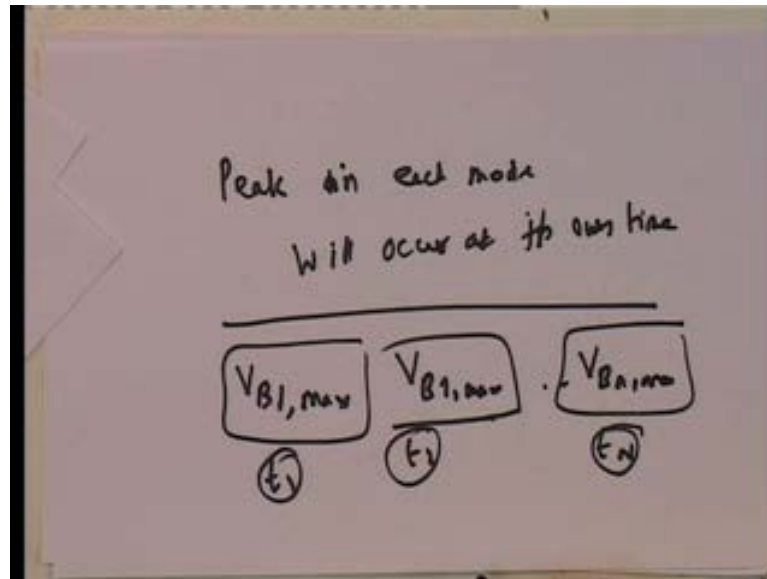 Peak in each mode
Will occur at its own time
V_B1, max V_B1, max . . V_Bn, max
t_1 t_1 t_N